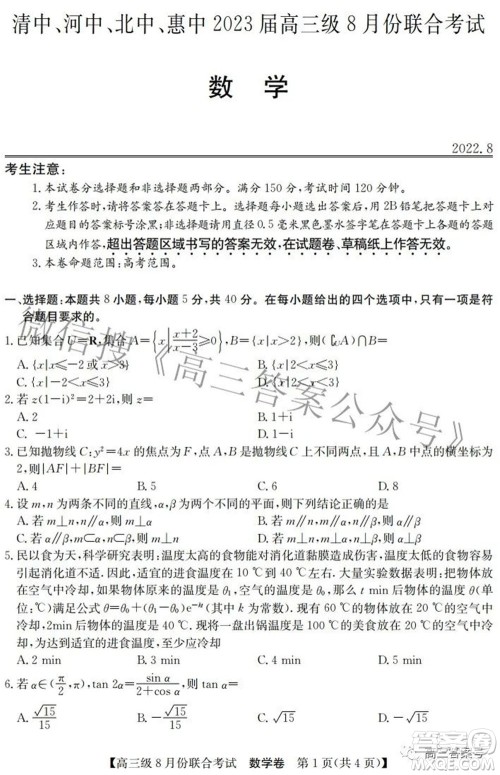 清中、河中、北中、惠中 2023 届高三级 8 月份联合考试
数 学
2022.8
考生注意：
1.本试卷分选择题和非选择题两部分。满分 150 分，考试时间 120 分钟。
2.考生作答时，请将答案答在答题卡上。选择题每小题选出答案后，用 2B 铅笔把答题卡上对应题目的答案标号涂黑；非选择题请用直径 0.5 毫米黑色墨水签字笔在答题卡上各题的答题区域内作答，超出答题区域书写的答案无效，在试题卷、草稿纸上作答无效。
3.本卷命题范围：高考范围。
一、选择题：本题共 8 小题，每小题 5 分，共 40 分。在每小题给出的四个选项中，只有一项是符合题目要求的。
1.已知集合 U=R，集合 A={x|(x+2)/(x-3)≥0}，B={x|x>2}，则(∁ᵤA)∩B=
A.{x|x≤-2 或 x>3} B.{x|2<x≤3}
C.{x|x≤-2 或 x≥3} D.{x|2<x<3}
2.若 z(1-i)²=2+2i，则 z=
A.2 B.1+i
C.-1+i D.1-i
3.已知抛物线 C:y²=4x 的焦点为 F，点 A，B 是抛物线 C 上不同两点，且 A，B 中点的横坐标为
2，则|AF|+|BF|=
A.4 B.5 C.6 D.8
4.设 m，n 为两条不同的直线，α，β 为两个不同的平面，则下列结论正确的是
A.若 m⊥n，n∥α，则 m⊥α B.若 m∥α，α∥β，则 m∥β
C.若 m⊥n，m⊥α，n⊥β，则 α⊥β D.若 m⊥n，m∥α，n∥β，则 α⊥β
5.民以食为天，科学研究表明：温度太高的食物能对消化道黏膜造成伤害，温度太低的食物容易
引起消化道不适。因此，适宜的进食温度在 10 ℃到 40 ℃左右。大量实验数据表明：把物体放
在空气中冷却，如果物体原来的温度是 θ₁，空气的温度是 θ₀，那么 t min 后物体的温度 θ(单
位：℃)满足公式 θ=θ₀+(θ₁-θ₀)e⁻ᵏᵗ(其中 k 为常数)。现有 60 ℃的物体放在 20 ℃的空气中
冷却，2min 后物体的温度是 40 ℃。现将一盘出锅温度 100 ℃的美食放在 20 ℃的空气中冷
却，为达到适宜的进食温度，至少应冷却
A.2 min B.3 min C.4 min D.5 min
6.若 α∈(π/2,π)，tan 2α=sin α/(2+cos α)，则 tan α=
A.√15/15 B.-√15/15 C.√15 D.-√15
【高三级 8 月份联合考试 数学卷 第 1 页(共 4 页)】
微信搜《高三答案公众号》
高三答案号